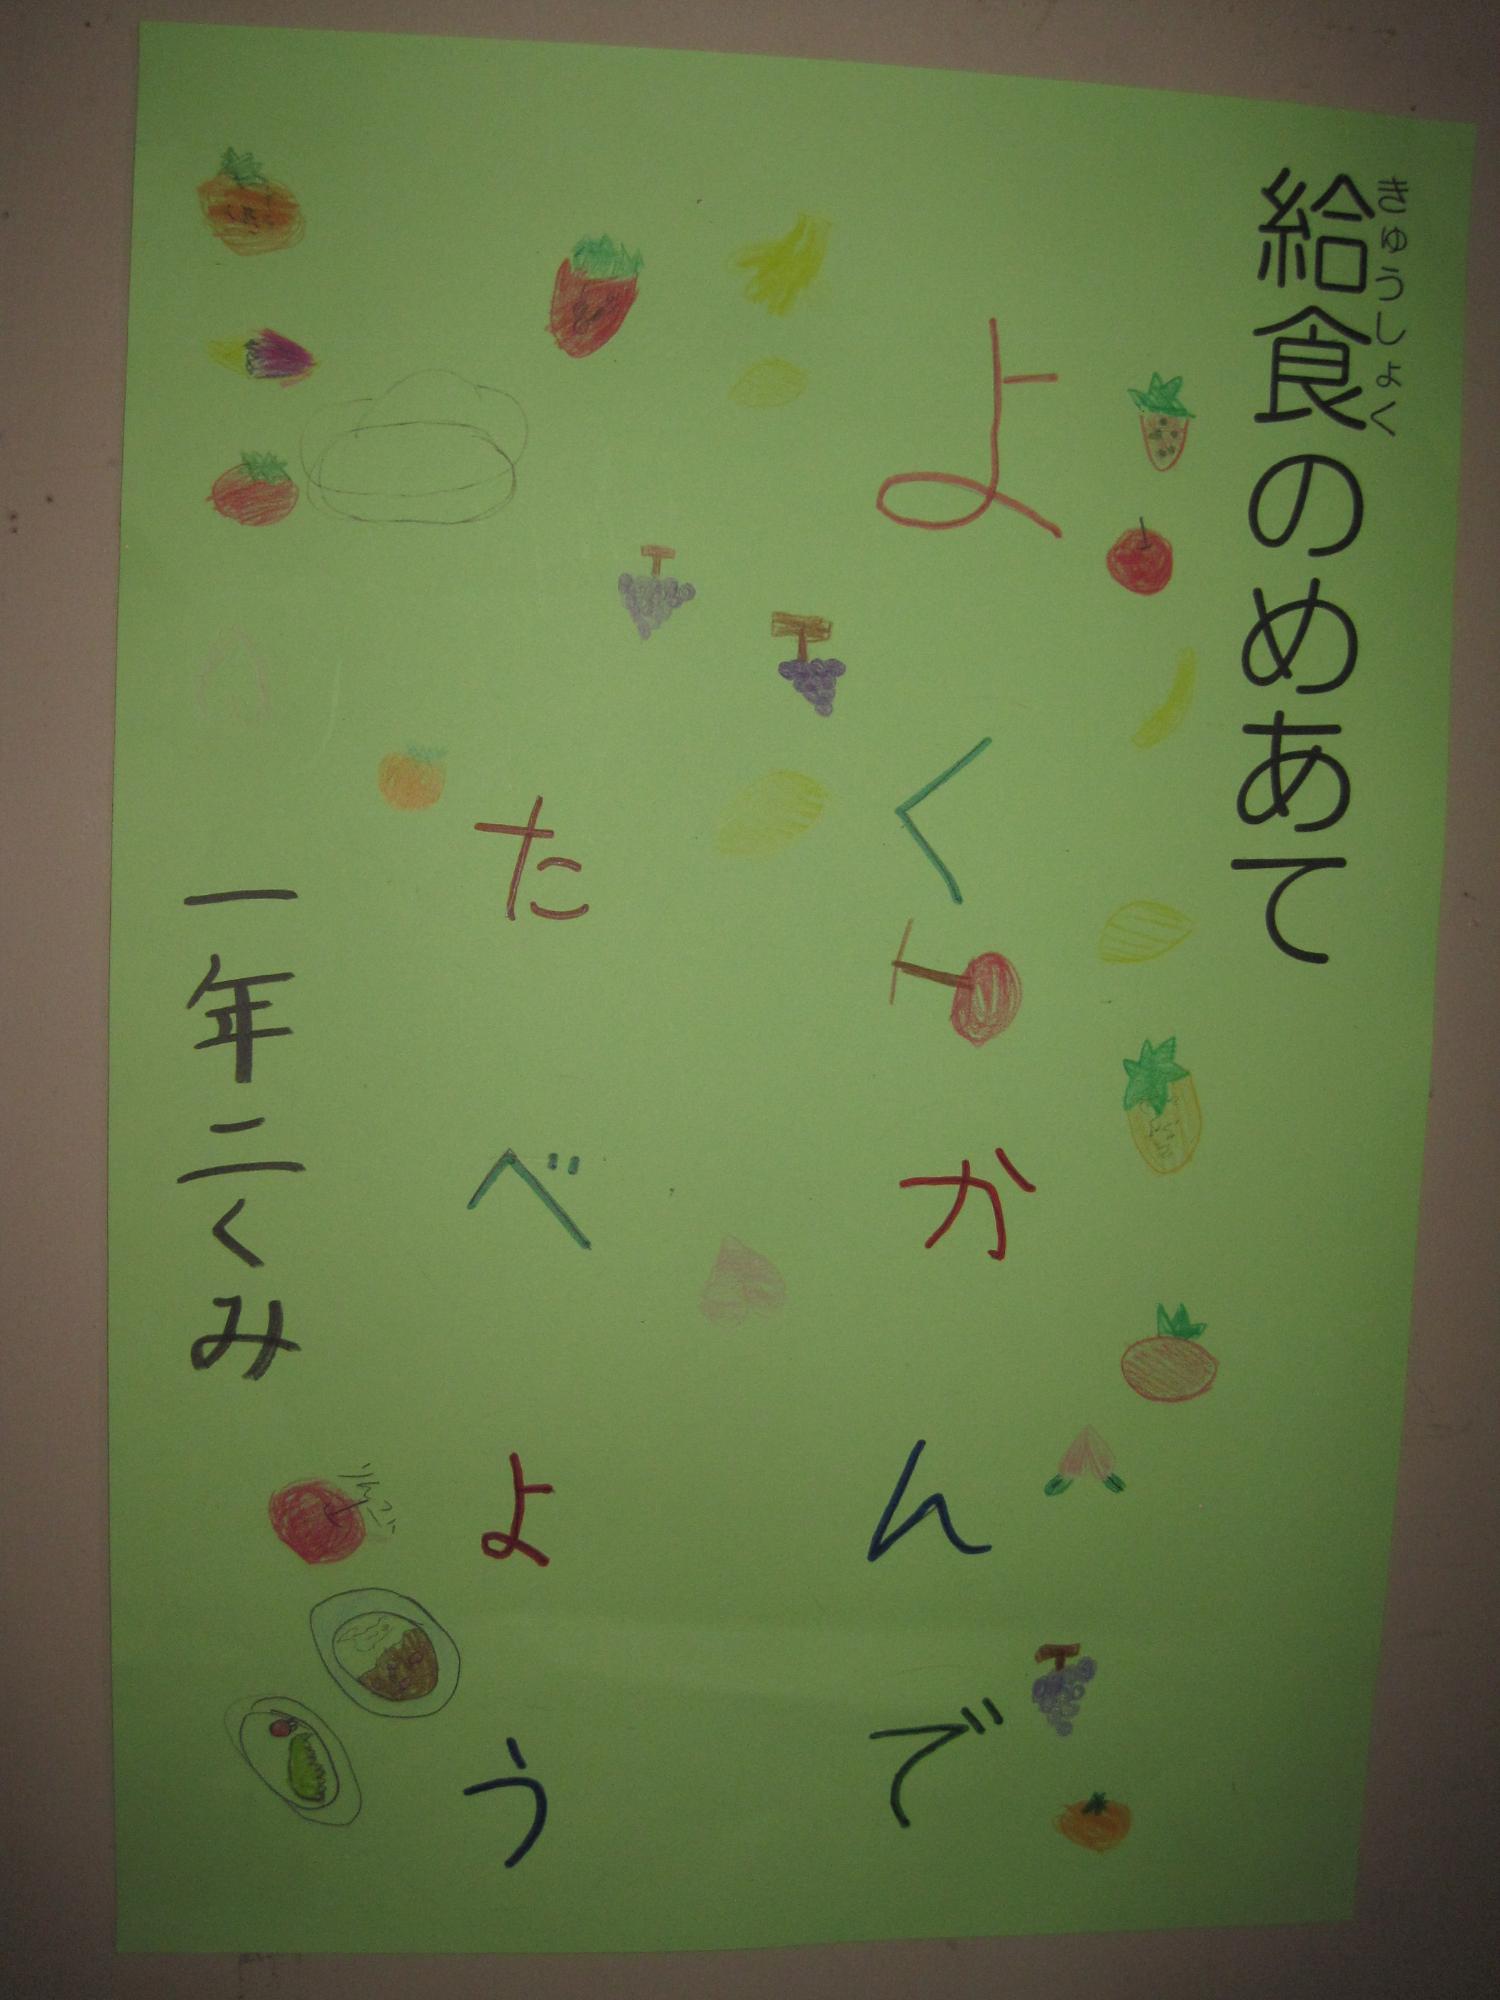 給食のめあて
きゅうしょく
よくかんで
たべよう
一年二くみ
りんご